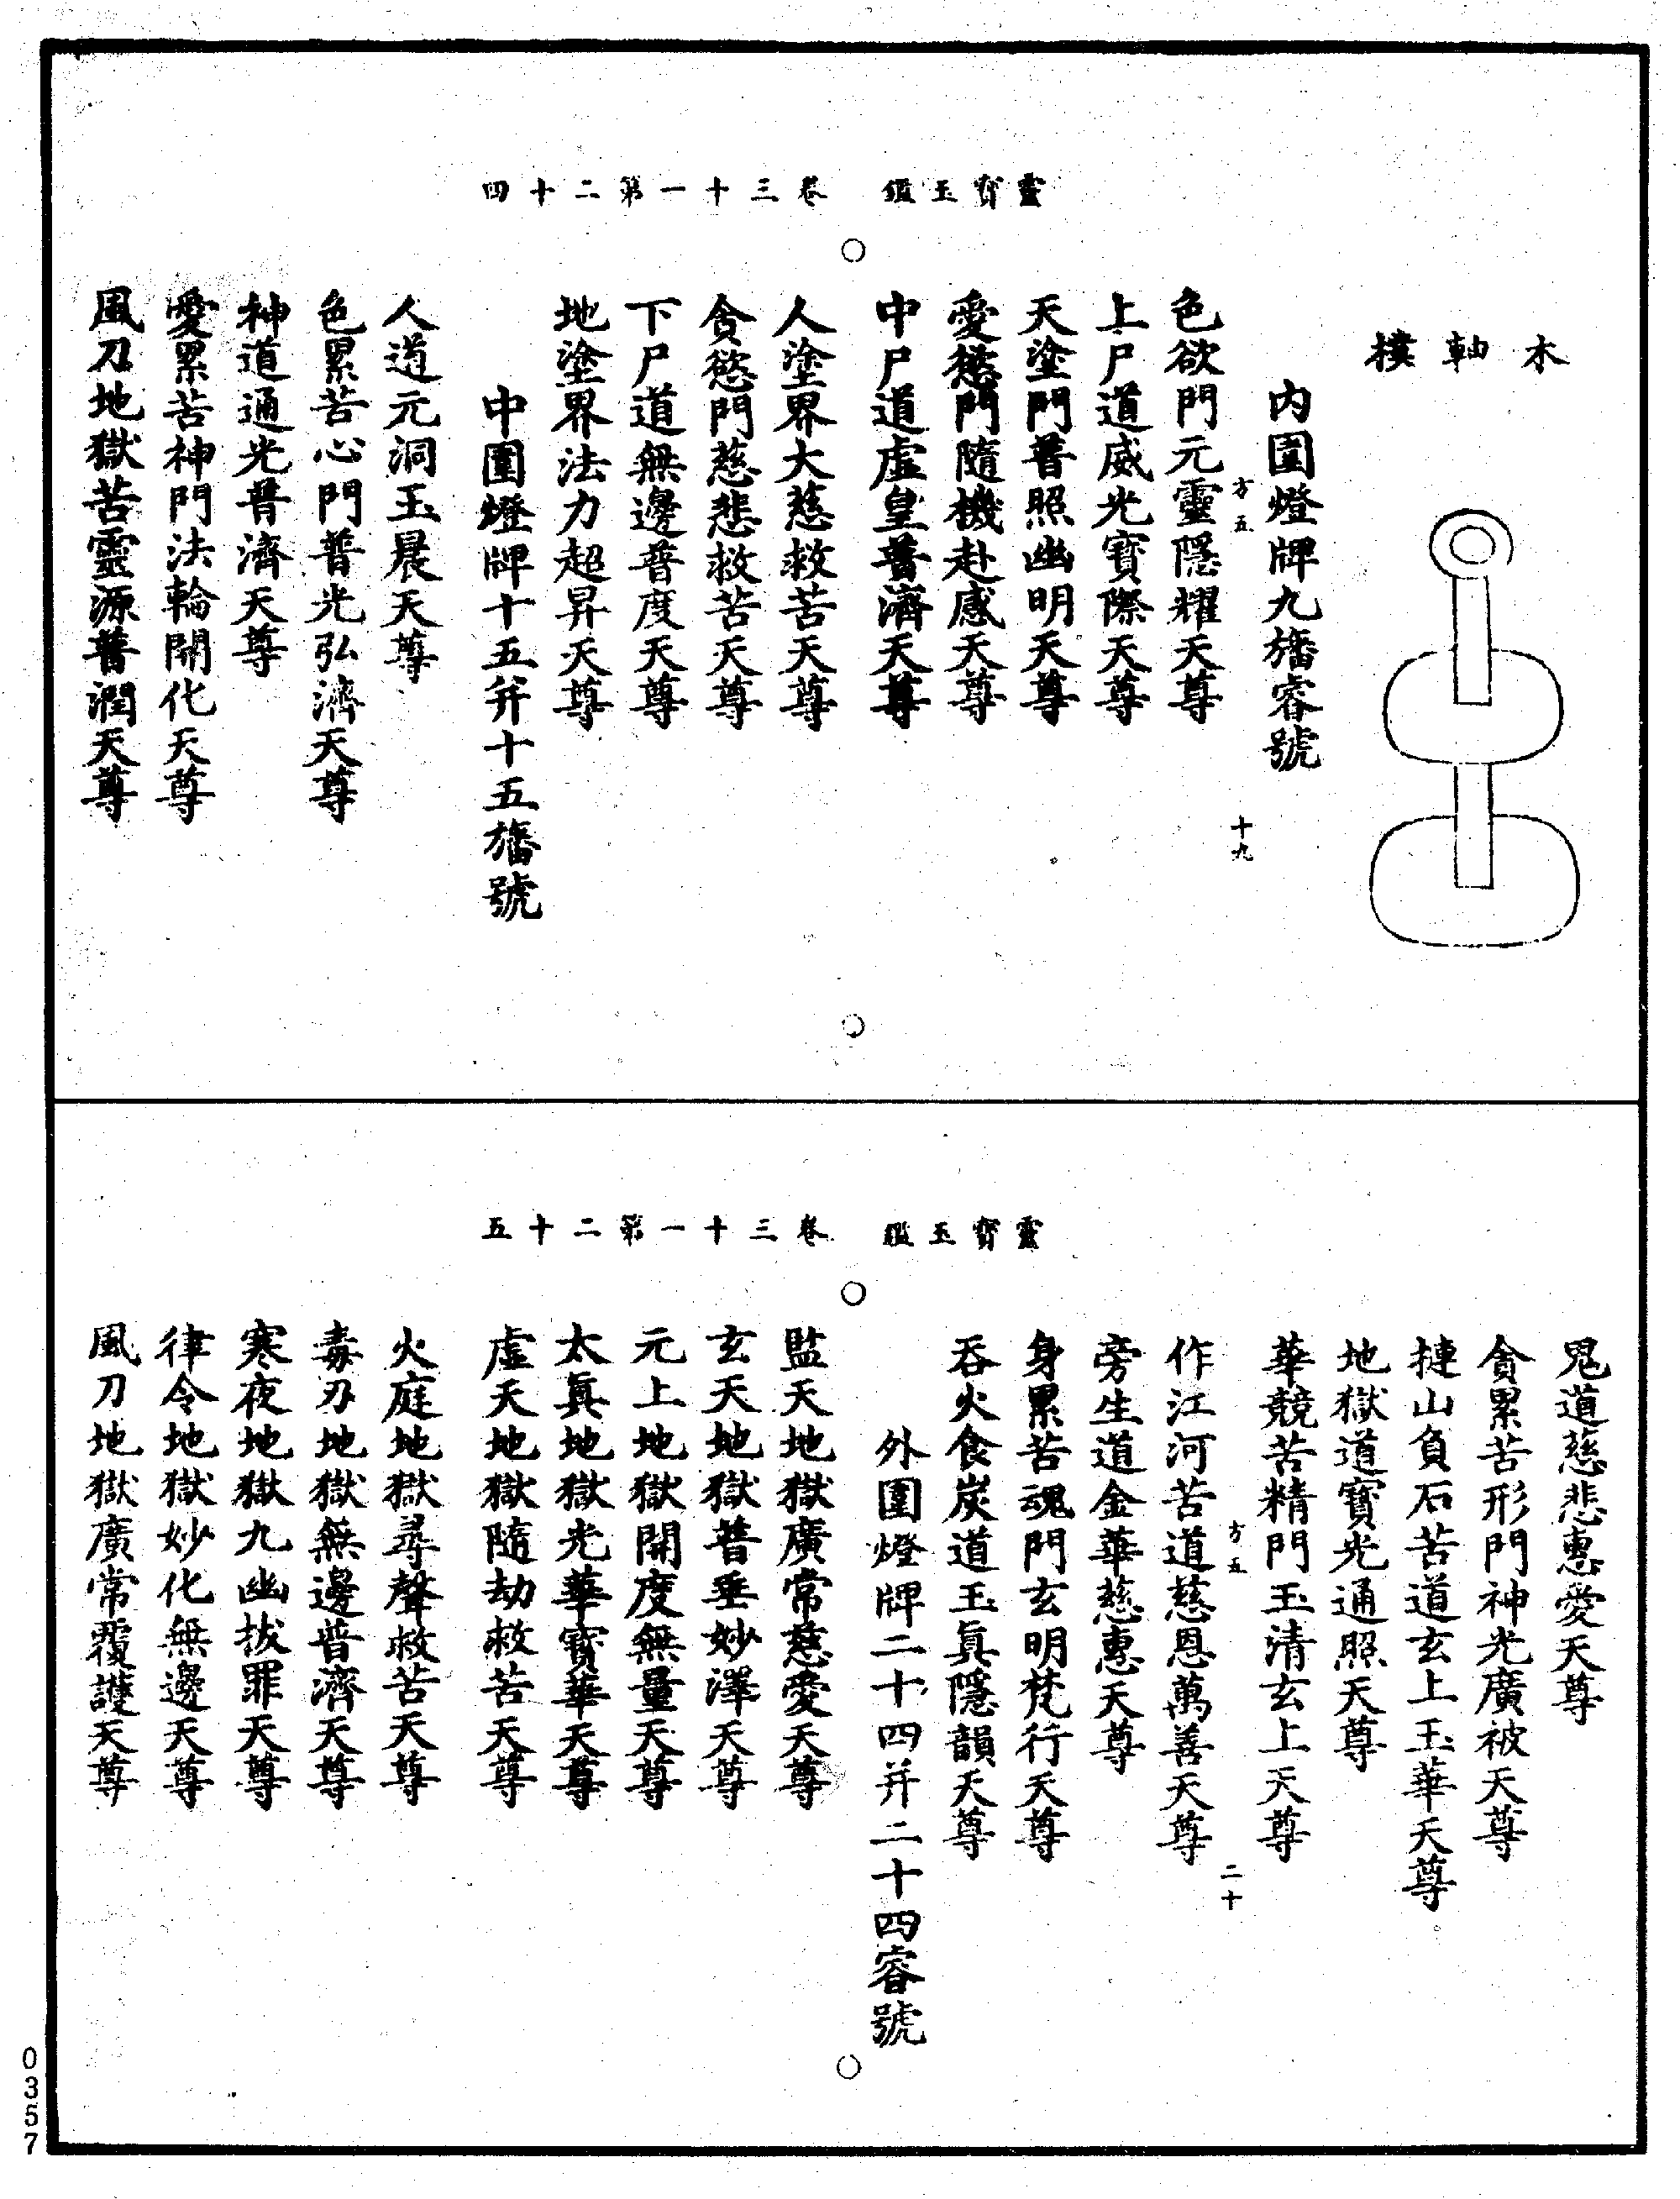 靈寶玉鑑 卷三十一第二十四
木軸樸
內圍燈牌九旛睿號
方五 十九
色欲門元靈隱耀天尊
上尸道威光寶際天尊
天塗門普照幽明天尊
愛慾門隨機赴感天尊
中尸道虛皇普濟天尊
人塗界大慈救苦天尊
貪慾門慈悲救苦天尊
下尸道無邊普度天尊
地塗界法力超昇天尊
中圍燈牌十五并十五旛號
人道元洞玉晨天尊
色累苦心門普光弘濟天尊
神道通光普濟天尊
愛累苦神門法輪開化天尊
風刀地獄苦靈源普潤天尊
靈寶玉鑑 卷三十一第二十五
鬼道慈悲惠愛天尊
貪累苦形門神光廣被天尊
揵山負石苦道玄上玉華天尊
地獄道寶光通照天尊
華競苦精門玉清玄上天尊
方五 二十
作江河苦道慈恩萬善天尊
旁生道金華慈惠天尊
身累苦魂門玄明梵行天尊
吞火食炭道玉眞隱韻天尊
外圍燈牌二十四并二十四睿號
監天地獄廣常慈愛天尊
玄天地獄普垂妙澤天尊
元上地獄開度無量天尊
太眞地獄光華寶華天尊
虛天地獄隨劫救苦天尊
火庭地獄尋聲救苦天尊
毒刃地獄無邊普濟天尊
寒夜地獄九幽拔罪天尊
律令地獄妙化無邊天尊
風刀地獄廣常覆護天尊
0357